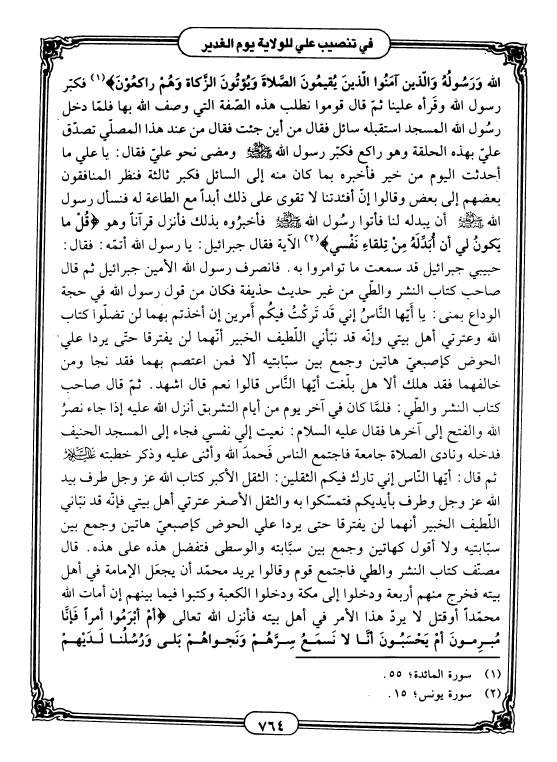 في تنصيب علي للولاية يوم الغدير
الله وَرَسُولُهُ وَالَّذين آمَنُوا الَّذينَ يُقيمُونَ الصَّلاةَ وَيُؤْتُونَ الزَّكاةَ وَهُمْ راكعُوْنَ﴾(١) فكبّر
رسول الله وقرأه علينا ثمّ قال قوموا نطلب هذه الصّفة التي وصف الله بها فلمّا دخل
رسُول الله المسجد استقبله سائل فقال من أين جئت فقال من عند هذا المصلّي تصدّق
عليّ بهذه الحلقة وهو راكع فكبّر رسول الله ﷺ ومضى نحو عليّ فقال: يا علي ما
أحدثت اليوم من خير فأخبره بما كان منه إلى السائل فكبر ثالثة فنظر المنافقون
بعضهم إلى بعض وقالوا إنّ أفئدتنا لا تقوى على ذلك أبداً مع الطاعة له فنسأل رسول
الله ﷺ أن يبدله لنا فأتوا رسُول الله ﷺ فأخبرُوه بذلك فأنزل قرآناً وهو ﴿قُلْ ما
يَكونُ لي أن أُبَدِّلَهُ مِنْ تِلقاءِ نَفْسي﴾(٢) الآية فقال جبرائيل: يا رسول الله أتمّه: فقال:
حبيبي جبرائيل قد سمعت ما توامروا به. فانصرف رسول الله الأمين جبرائيل ثم قال
صاحب كتاب النشر والطّي من غير حديث حذيفة فكان من قول رسول الله في حجة
الوداع بمنى: يا أَيّها النَّاسُ إني قَد تَركْتُ فيكُم أَمرين إن أخذتم بهما لن تضلّوا كتاب
الله وعترتي أهل بيتي وإنّه قد نبّأني اللّطيف الخبير أنّهما لن يفترقا حتّى يردا علي
الحوض كإصبعيّ هاتين وجمع بين سبّابتيه ألا فمن اعتصم بهما فقد نجا ومن
خالفهما فقد هلك ألا هل بلّغت أيّها النَّاس قالوا نعم قال اشهد. ثمّ قال صاحب
كتاب النشر والطّي: فلمّا كان في آخر يوم من أيام التشريق أنزل الله عليه إذا جاء نصرُ
الله والفتح إلى آخرها فقال عليه السلام: نعيت إلي نفسي فجاء إلى المسجد الحنيف
فدخله ونادى الصلاة جامعة فاجتمع الناس فَحمدَ الله وأثنى عليه وذكر خطبته عليه السلام
ثم قال: أيّها النّاس إني تارك فيكم الثقلين: الثقل الأكبر كتاب الله عز وجل طرف بيد
الله عز وجل وطرف بأيديكم فتمسّكوا به والثقل الأصغر عترتي أهل بيتي فإنّه قد نبّاني
اللّطيف الخبير أنهما لن يفترقا حتى يردا علي الحوض كإصبعيّ هاتين وجمع بين
سبّابتيه ولا أقول كهاتين وجمع بين سبَّابته والوسطى فتفضل هذه على هذه. قال
مصنّف كتاب النشر والطي فاجتمع قوم وقالوا يريد محمّد أن يجعَل الإمامة في أهل
بيته فخرج منهم أربعة ودخلوا إلى مكة ودخلوا الكعبة وكتبوا فيما بينهم إن أمات الله
محمّداً أوقتل لا يردّ هذا الأمر في أهل بيته فأنزل الله تعالى ﴿أَمْ أبْرَمُوا أمراً فَإنَّا
مُبرِمونَ أمْ يَحْسَبُونَ أنَّا لا نَسمَعُ سِرَّهُمْ وَنَجواهُمْ بَلى وَرُسُلُنا لَدَيْهِمْ
(١) سورة المائدة؛ ٥٥.
(٢) سورة يونس؛ ١٥.
٧٦٤